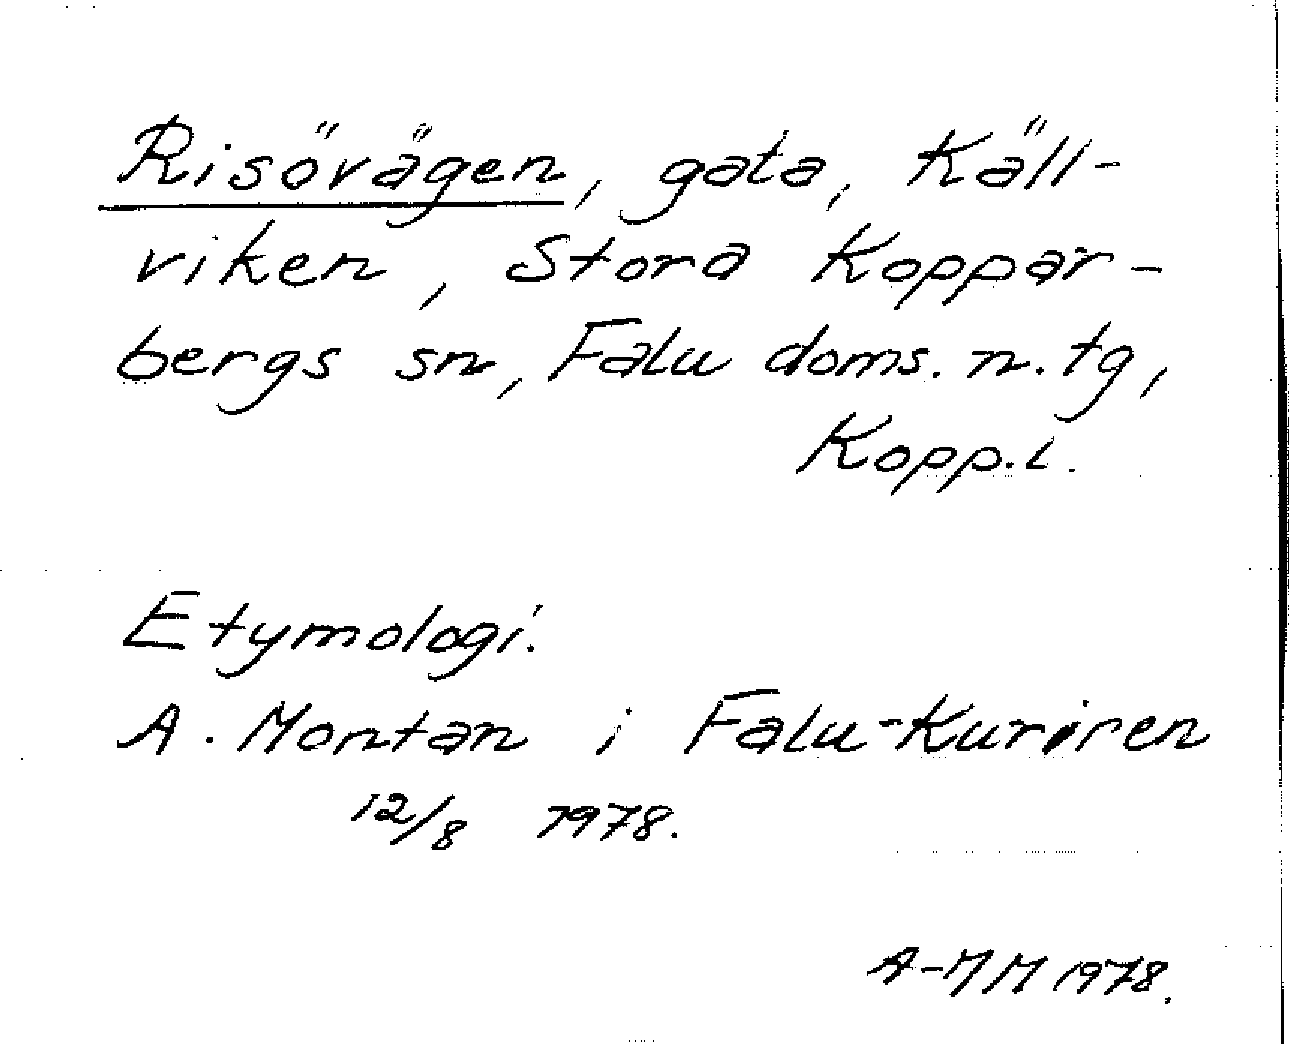 Risövägen, gata, Käll-
viken, Stora Koppar-
bergs sn, Falu doms. n. tg,
Kopp. l.
Etymologi.
A. Montan i Falu-Kuriren
12/8 1978.
A-MM 1978.